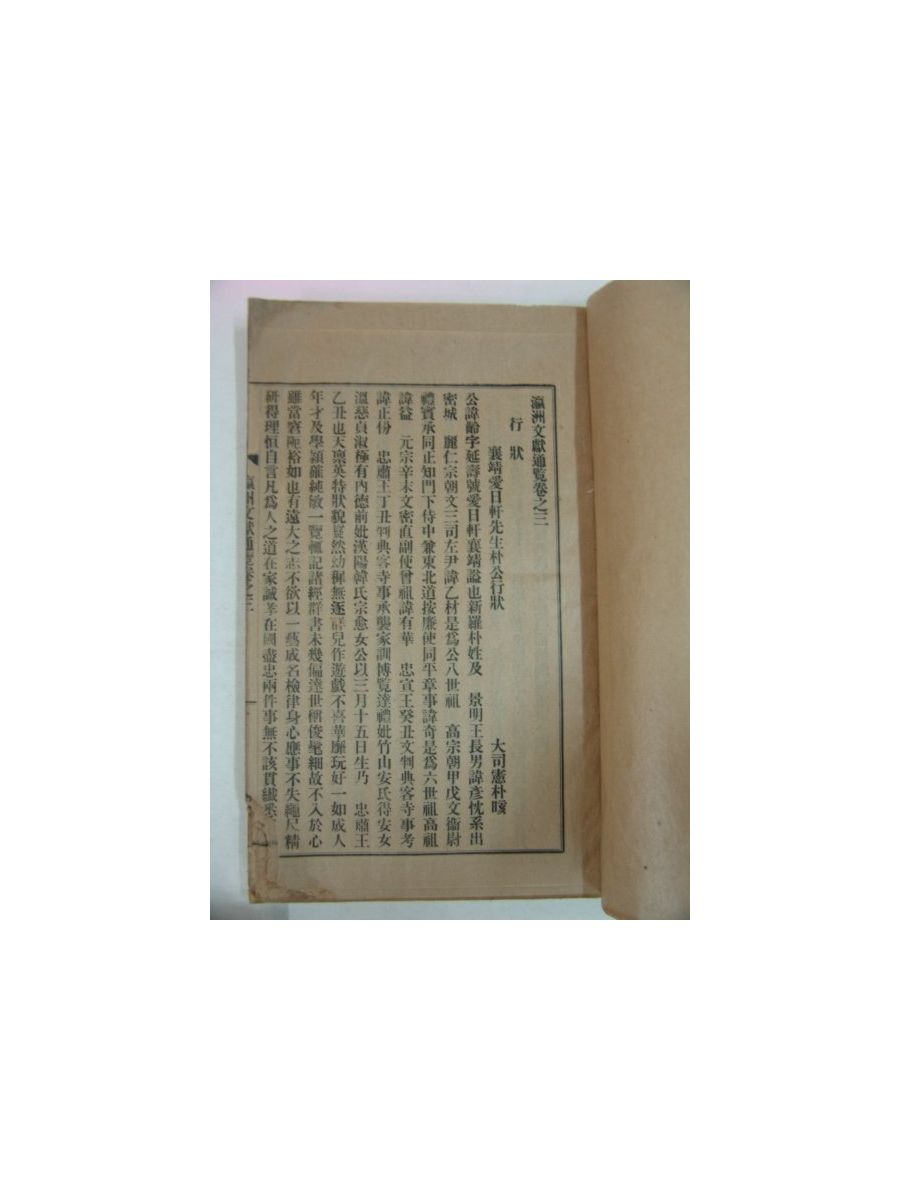 瀛洲文獻通覽卷之三
行狀
襄靖愛日軒先生朴公行狀
大司憲朴晐
公諱齡字延壽號愛日軒襄靖謚也新羅朴姓及 景明王長男諱彥忱系出
密城 麗仁宗朝文三司左尹諱乙材是爲公八世祖 高宗朝甲戊文衞尉
禮賓承同正知門下侍中兼東北道按廉使同平章事諱奇是爲六世祖高祖
諱益 元宗辛未文密直副使曾祖諱有華 忠宣王癸丑文判典客寺事考
諱正份 忠肅王丁丑判典客寺事承襲家訓博覽達禮妣竹山安氏得安女
溫慈貞淑極有內德前妣漢陽韓氏宗愈女公以三月十五日生乃 忠肅王
乙丑也天稟英特狀貌嶷然幼穉無逐群兒作遊戲不喜華靡玩好一如成人
年才及學穎確純敏一覽輒記諸經群書未幾偏達世稱俊髦細故不入於心
雖當窘阨裕如也有遠大之志不欲以一藝成名檢律身心應事不失繩尺精
研得理恒自言凡爲人之道在家誠孝在國盡忠兩件事無不該貫纖悉
瀛洲文獻通覽卷之三